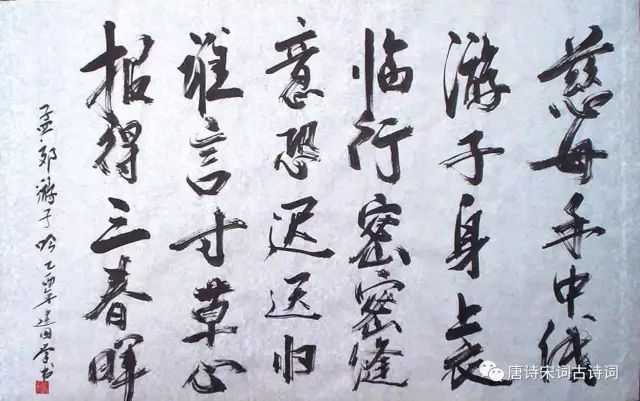 慈母手中线
游子身上衣
临行密密缝
意恐迟迟归
谁言寸草心
报得三春晖
孟郊游子吟乙酉年建国书
唐诗宋词古诗词